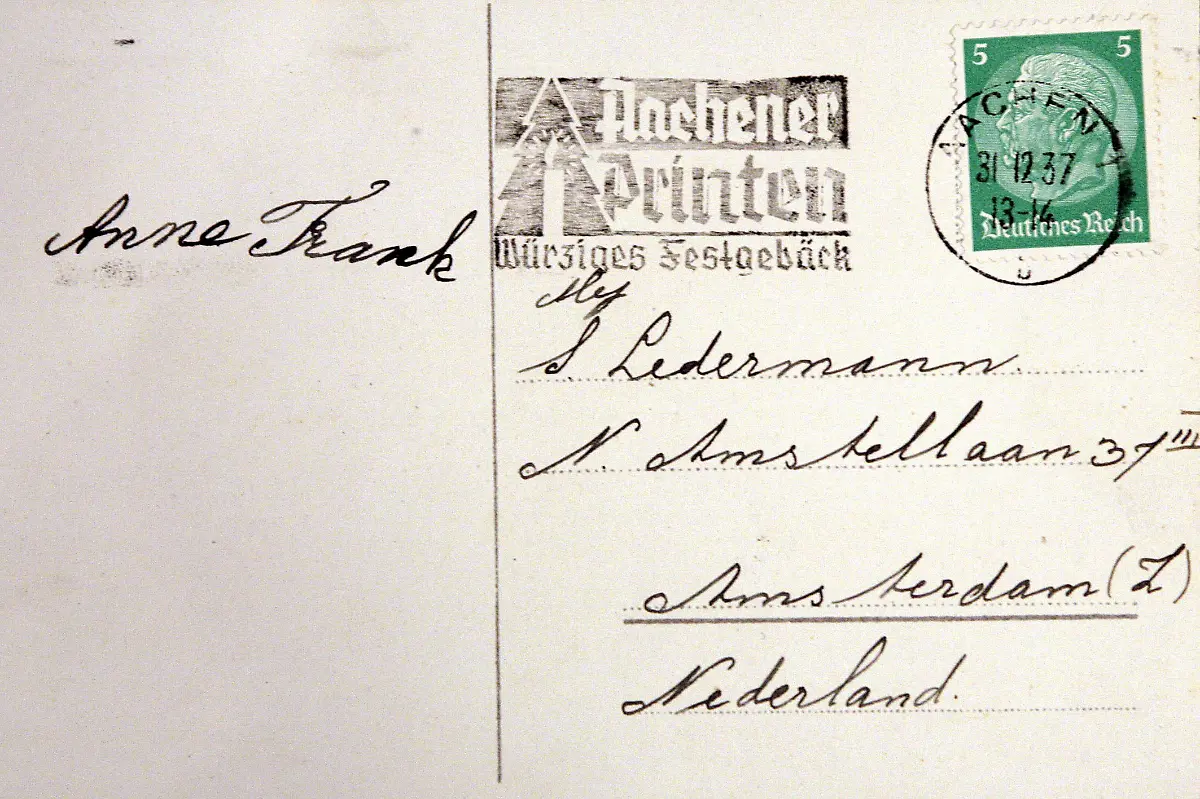 Anne Frank
Aachener
Printen
Würziges Festgebäck
5 5
AACHEN 1
31.12.37
13-14
Deutsches Reich
Mej
S Ledermann.
N. Amstellaan 37 III
Amsterdam (Z)
Nederland.